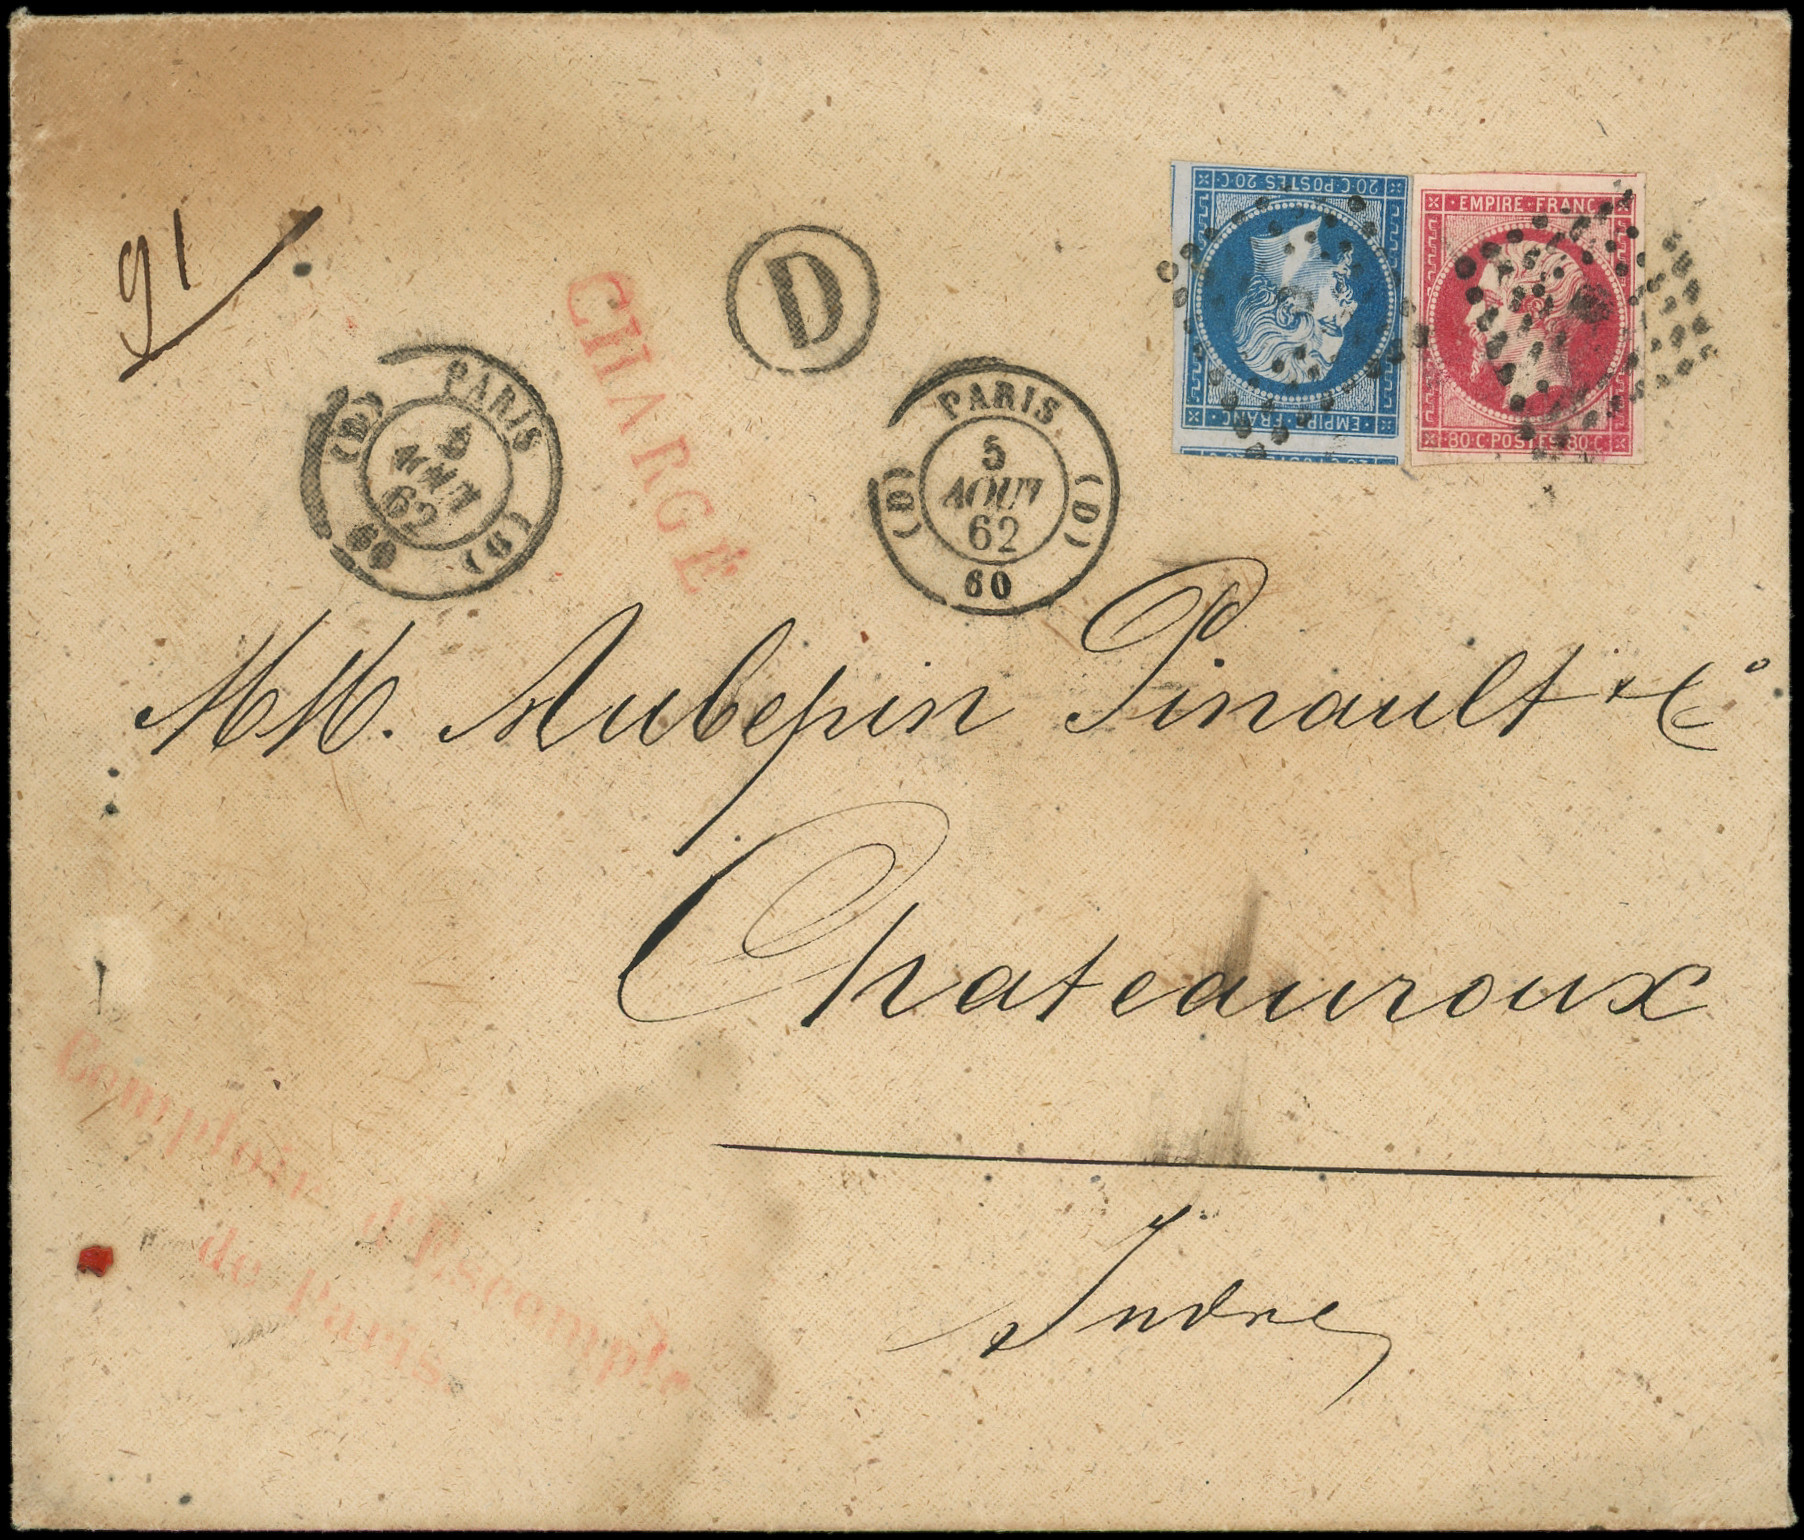 91
D
CHARGÉ
20·C·POSTES 20·C
EMPIRE·FRANC
EMPIRE·FRANC
80·C·POSTES·80·C
PARIS
(D)
5
AOUT
62
(D)
60
PARIS
(D)
5
AOUT
62
(D)
60
MM. Aubepin Pinault & Cº
Chateauroux
Indre
Comptoir d'Escompte
de Paris.